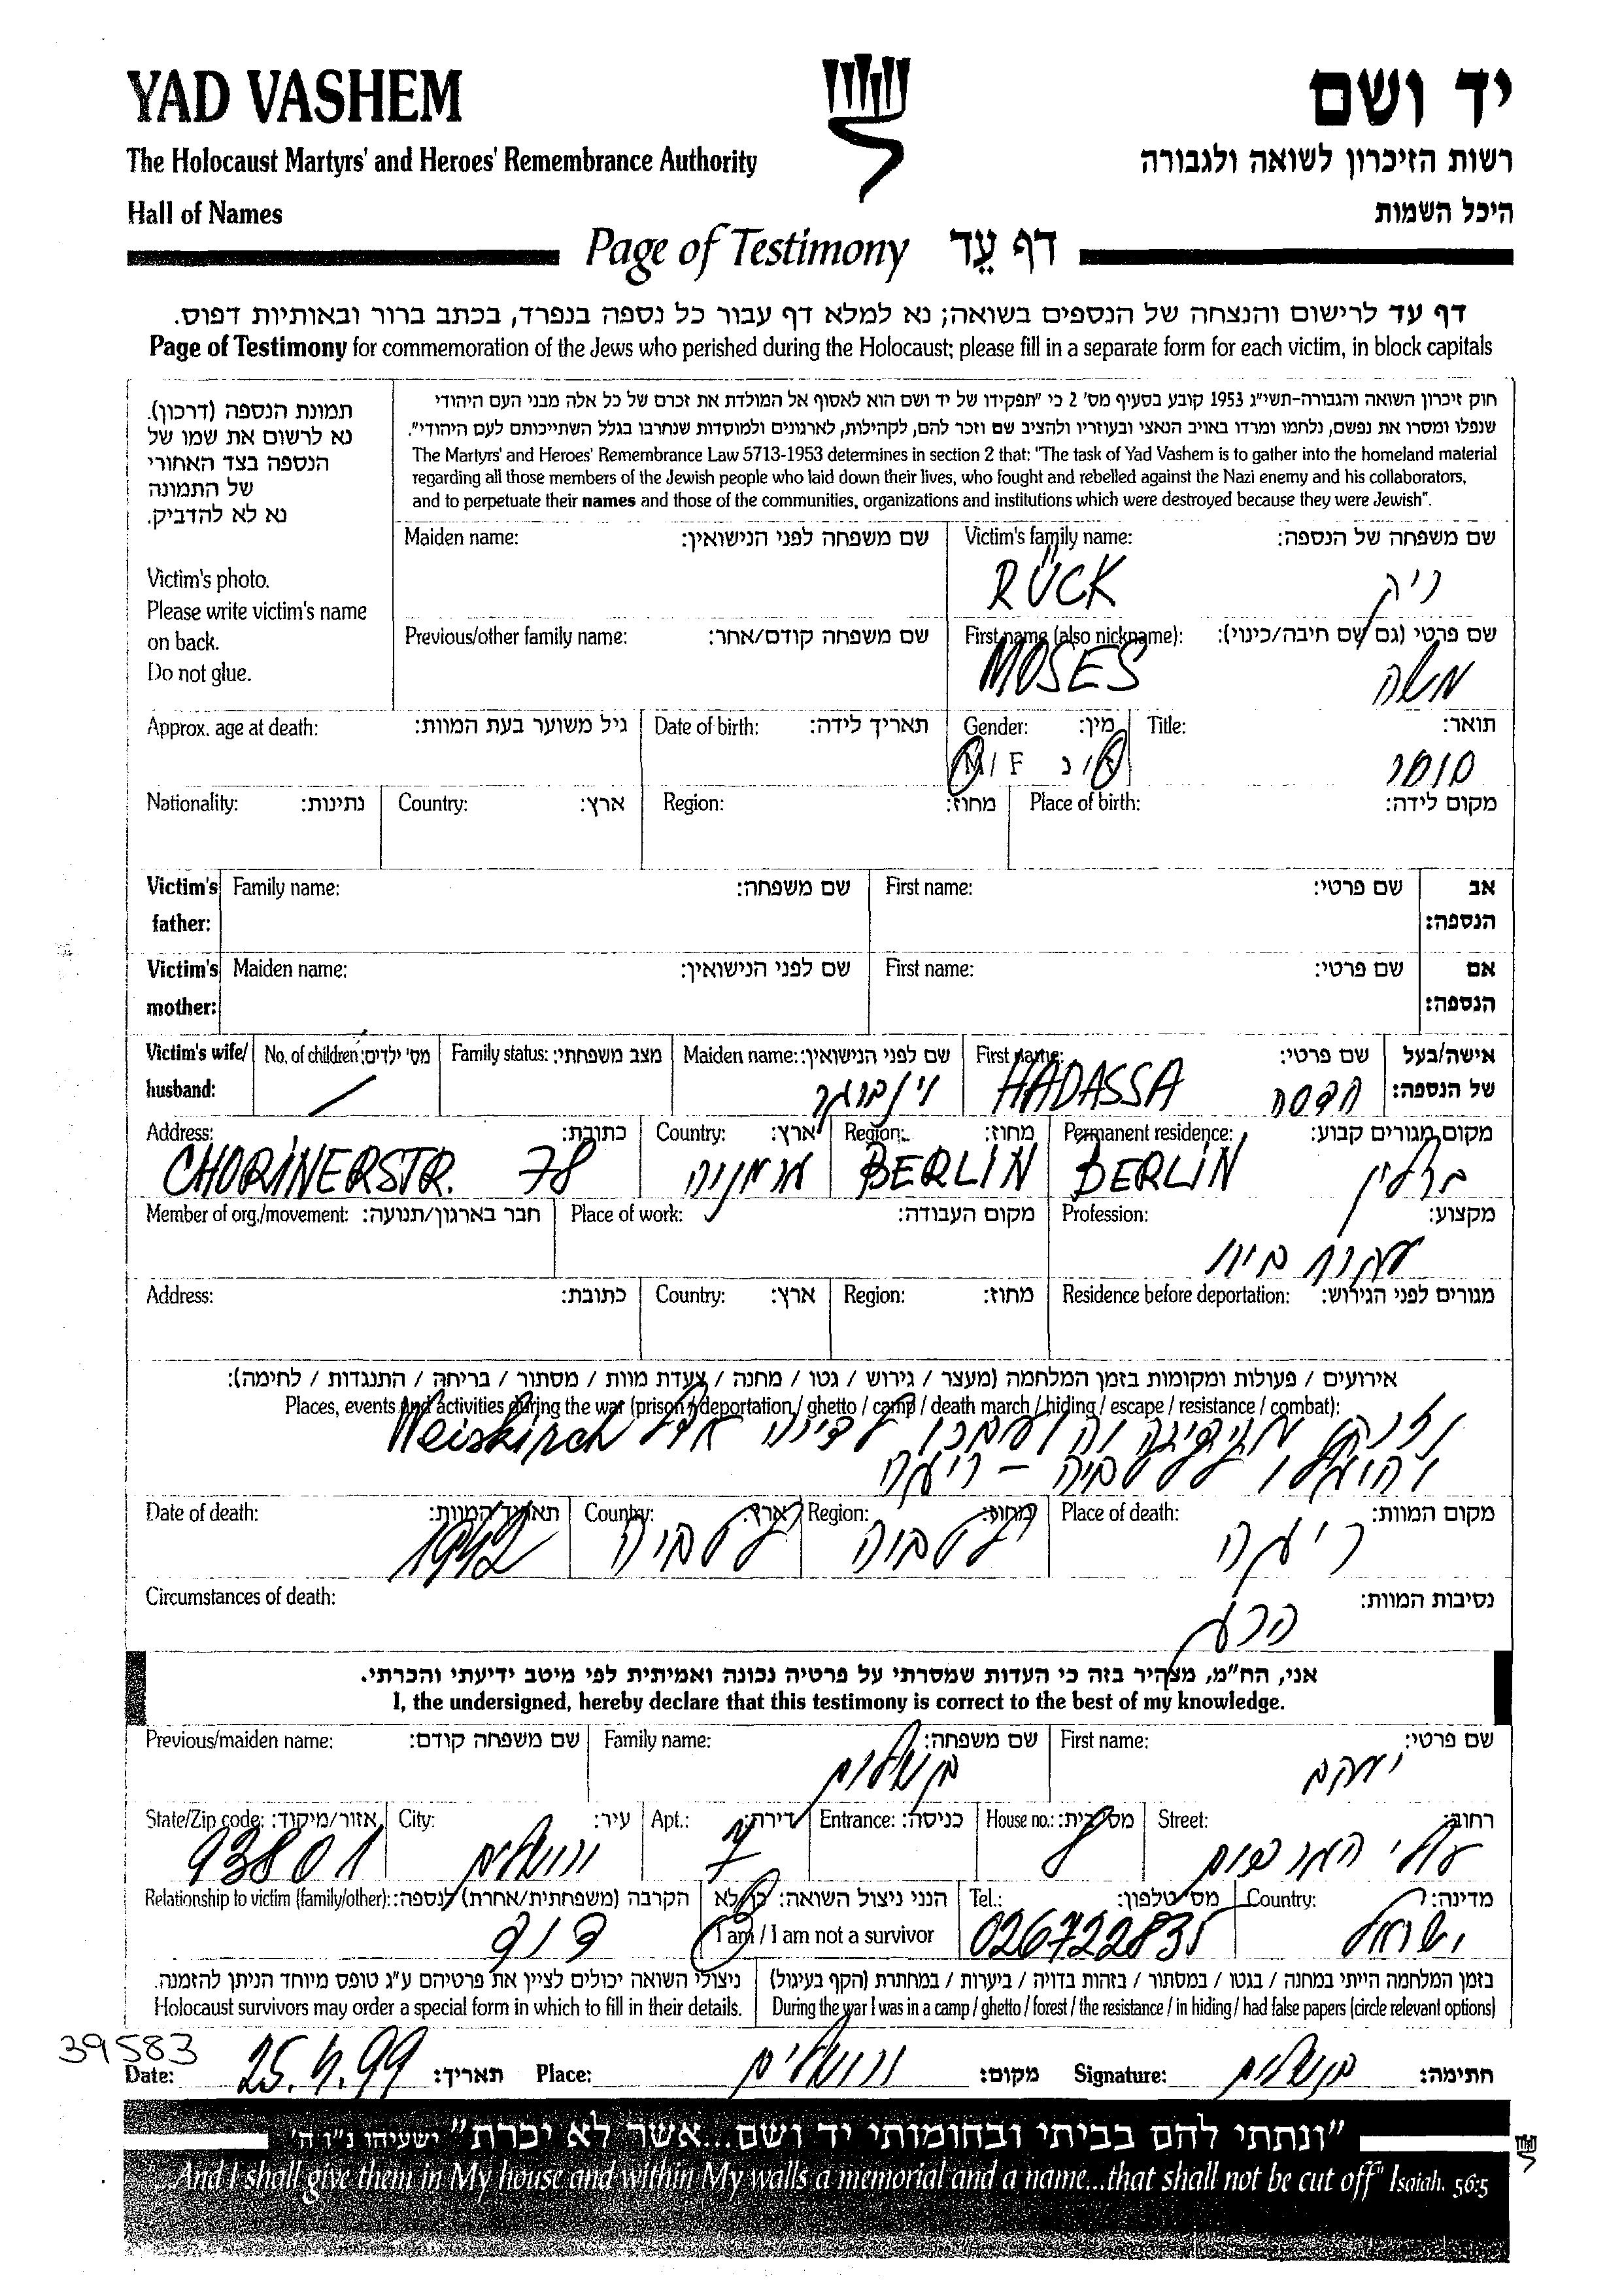 YAD VASHEM
יד ושם
The Holocaust Martyrs' and Heroes' Remembrance Authority
רשות הזיכרון לשואה ולגבורה
Hall of Names
היכל השמות
Page of Testimony דף עֵד
דף עד לרישום והנצחה של הנספים בשואה; נא למלא דף עבור כל נספה בנפרד, בכתב ברור ובאותיות דפוס.
Page of Testimony for commemoration of the Jews who perished during the Holocaust; please fill in a separate form for each victim, in block capitals
תמונת הנספה (דרכון).
נא לרשום את שמו של
הנספה בצד האחורי
של התמונה
נא לא להדביק.
Victim's photo.
Please write victim's name
on back.
Do not glue.
חוק זיכרון השואה והגבורה-תשי"ג 1953 קובע בסעיף מס' 2 כי "תפקידו של יד ושם הוא לאסוף אל המולדת את זכרם של כל אלה מבני העם היהודי
שנפלו ומסרו את נפשם, נלחמו ומרדו באויב הנאצי ובעוזריו ולהציב שם וזכר להם, לקהילות, לארגונים ולמוסדות שנחרבו בגלל השתייכותם לעם היהודי".
The Martyrs' and Heroes' Remembrance Law 5713-1953 determines in section 2 that: "The task of Yad Vashem is to gather into the homeland material
regarding all those members of the Jewish people who laid down their lives, who fought and rebelled against the Nazi enemy and his collaborators,
and to perpetuate their names and those of the communities, organizations and institutions which were destroyed because they were Jewish".
Maiden name: שם משפחה לפני הנישואין: Victim's family name: שם משפחה של הנספה:
RÜCK ריק
Previous/other family name: שם משפחה קודם/אחר: First name (also nickname): שם פרטי (גם שם חיבה/כינוי):
MOSES משה
Approx. age at death: גיל משוער בעת המוות: Date of birth: תאריך לידה: Gender: מין: Title: תואר:
M / F ז / נ סוחר
Nationality: נתינות: Country: ארץ: Region: מחוז: Place of birth: מקום לידה:
Victim's father: Family name: שם משפחה: First name: שם פרטי: אב הנספה:
Victim's mother: Maiden name: שם לפני הנישואין: First name: שם פרטי: אם הנספה:
Victim's wife/ husband: No. of children: מס' ילדים: Family status: מצב משפחתי: Maiden name: שם לפני הנישואין: First name: שם פרטי: אישה/בעל של הנספה:
HADASSA הדסה
Address: כתובת: Country: ארץ: Region: מחוז: Permanent residence: מקום מגורים קבוע:
CHORINERSTR. 78 גרמניה BERLIN BERLIN ברלין
Member of org./movement: חבר בארגון/תנועה: Place of work: מקום העבודה: Profession: מקצוע:
עקרת בית
Address: כתובת: Country: ארץ: Region: מחוז: Residence before deportation: מגורים לפני הגירוש:
אירועים / פעולות ומקומות בזמן המלחמה (מעצר / גירוש / גטו / מחנה / צעדת מוות / מסתור / בריחה / התנגדות / לחימה):
Places, events and activities during the war (prison / deportation / ghetto / camp / death march / hiding / escape / resistance / combat):
Weiskirch אצל
ללטביה - ריגה
Date of death: תאריך המוות: Country: ארץ: Region: מחוז: Place of death: מקום המוות:
1942 לטביה לטביה ריגה
Circumstances of death: נסיבות המוות:
הרג
אני, הח"מ, מצהיר בזה כי העדות שמסרתי על פרטיה נכונה ואמיתית לפי מיטב ידיעתי והכרתי.
I, the undersigned, hereby declare that this testimony is correct to the best of my knowledge.
Previous/maiden name: שם משפחה קודם: Family name: שם משפחה: First name: שם פרטי:
בן שלום יעקב
State/Zip code: אזור/מיקוד: City: עיר: Apt.: דירה: Entrance: כניסה: House no.: מס' בית: Street: רחוב:
93801 ירושלים 7 8 עולי הגרדום
Relationship to victim (family/other): הקרבה (משפחתית/אחרת) לנספה: הנני ניצול השואה: כן / לא Tel.: מס' טלפון: Country: מדינה:
דוד I am / I am not a survivor 026722835 ישראל
ניצולי השואה יכולים לציין את פרטיהם ע"ג טופס מיוחד הניתן להזמנה. בזמן המלחמה הייתי במחנה / בגטו / במסתור / בזהות בדויה / ביערות / במחתרת (הקף בעיגול)
Holocaust survivors may order a special form in which to fill in their details. During the war I was in a camp / ghetto / forest / the resistance / in hiding / had false papers (circle relevant options)
39583
Date: 25.4.99 תאריך: Place: ירושלים מקום: Signature: בן שלום חתימה:
"ונתתי להם בביתי ובחומותי יד ושם...אשר לא יכרת" ישעיהו נ"ו ה'
"...And I shall give them in My house and within My walls a memorial and a name...that shall not be cut off" Isaiah, 56:5